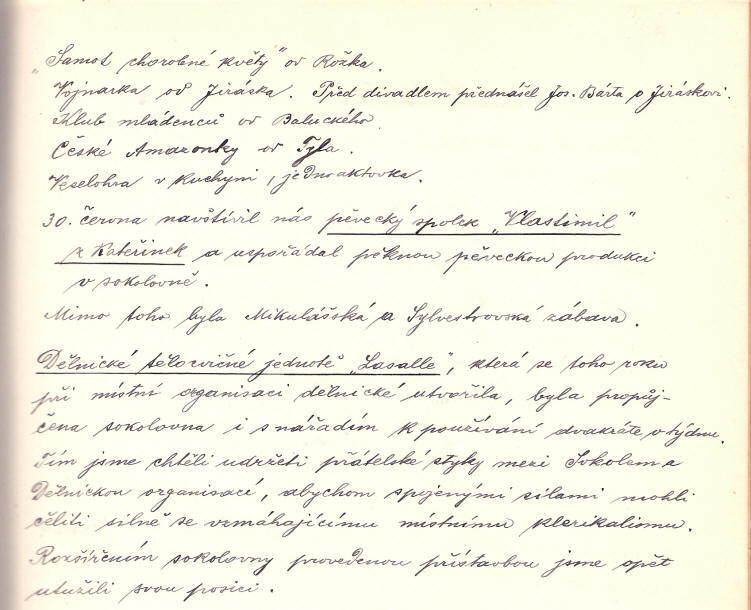 „Samot chorobné květy" od Rožka.
Vojnarka od Jiráska. Před divadlem přednášel Jos. Bárta o Jiráskovi.
Klub mládenců od Baluckého.
České Amazonky od Tyla.
Veselohra v kuchyni, jednoaktovka.
30. června navštívil nás pěvecký spolek „Vlastimil"
z Kateřinek a uspořádal pěknou pěveckou produkci
v sokolovně.
Mimo toho byla Mikulášská a Sylvestrovská zábava.
Dělnické tělocvičné jednotě „Lasalle", která se toho roku
při místní organisaci dělnické utvořila, byla propůj-
čena sokolovna i s nářadím k používání dvakráte v týdnu.
Tím jsme chtěli udržeti přátelské styky mezi Sokolem a
Dělnickou organisací, abychom spojenými silami mohli
čeliti silně se vzmáhajícímu místnímu klerikalismu.
Rozšířením sokolovny provedenou přístavbou jsme opět
utužili svou posici.